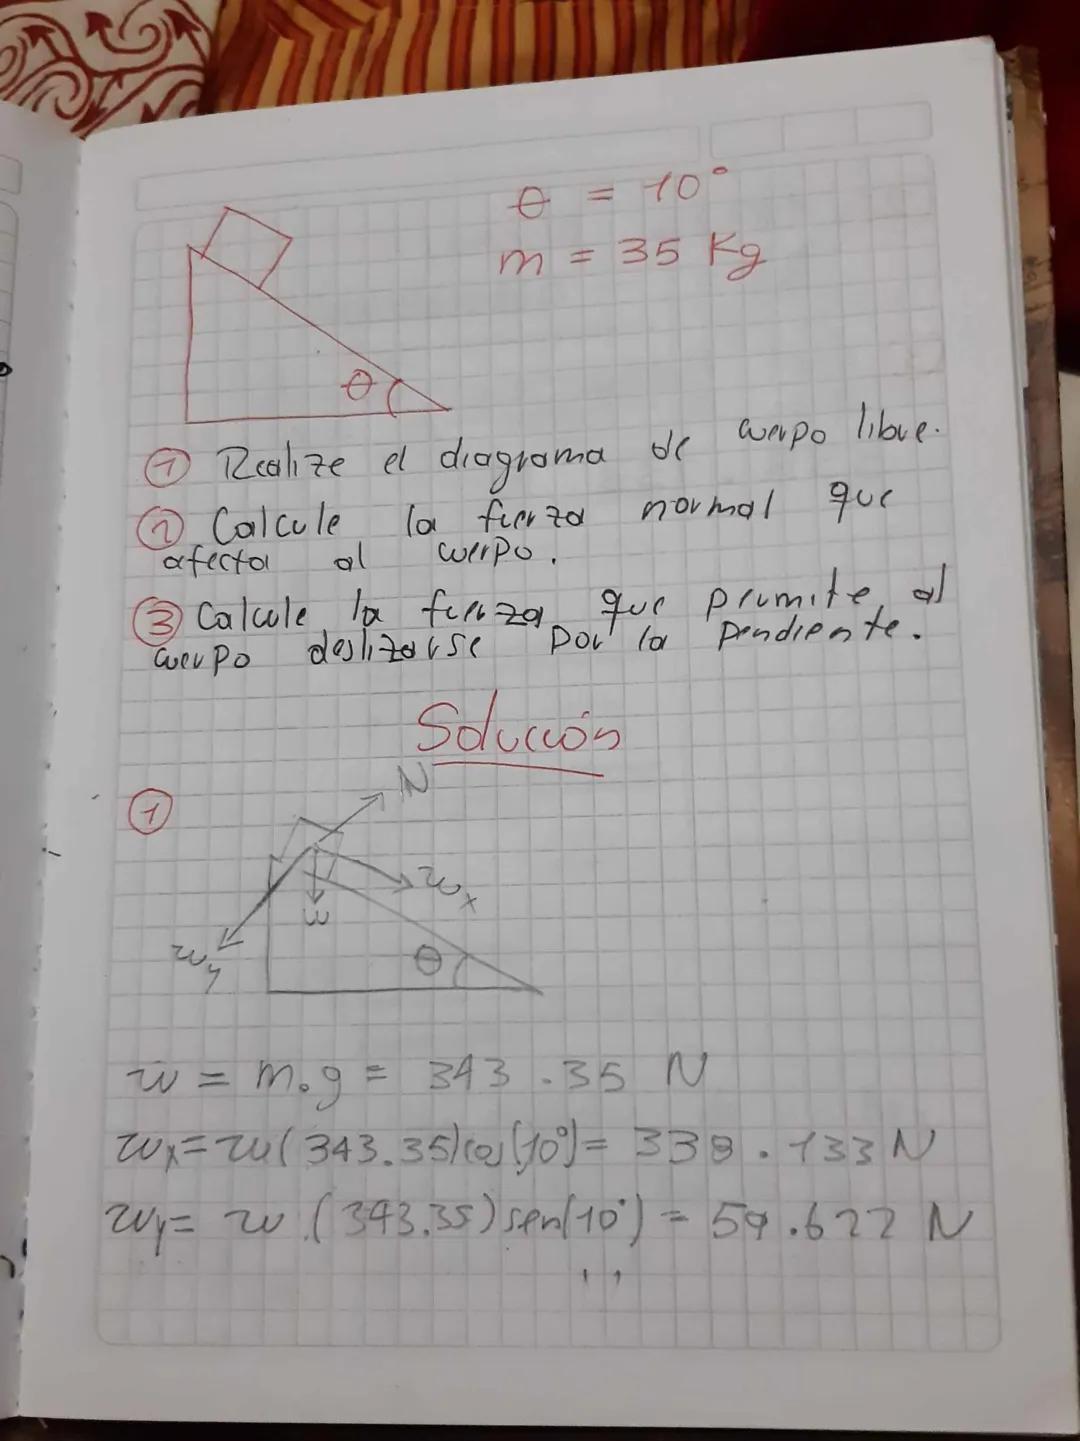 θ = 10°
m = 35 Kg
θ
① Realize el diagrama de cuerpo libre.
② Calcule la fuerza normal que
afecta al cuerpo.
③ Calcule la fuerza que primite al
cuerpo deslizarse por la pendiente.
Solución
①
N
wx
w
wy
θ
w = m.g = 343.35 N
wx = w (343.35) cos(10°) = 338.133 N
wy = w.(343.35) sen(10°) = 59.622 N